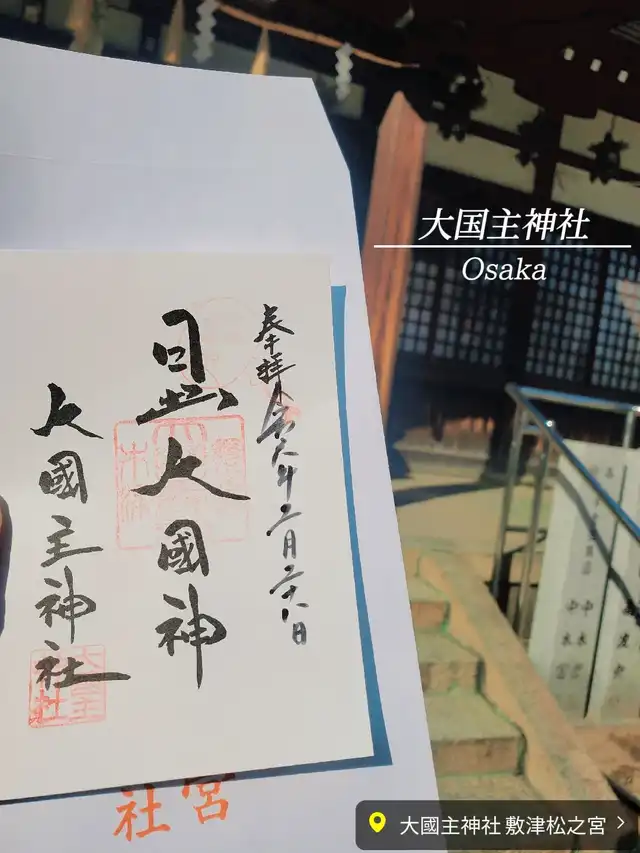 大国主神社
Osaka
奉拝 令和六年二月二十八日
日出大國神
大國主神社
宮
社
大國主神社 敷津松之宮